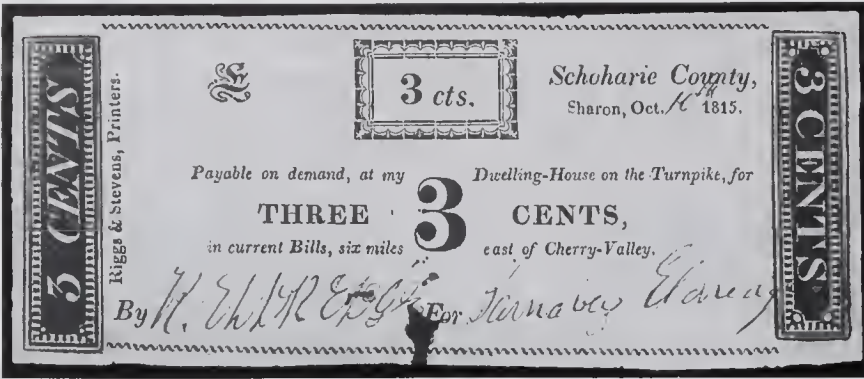 3 CENTS
Riggs & Stevens, Printers.
3 cts.
Schoharie County,
Sharon, Oct. 1815.
Payable on demand, at my Dwelling-House on the Turnpike, for
THREE 3 CENTS,
in current Bills, six miles east of Cherry-Valley.
By For
3 CENTS